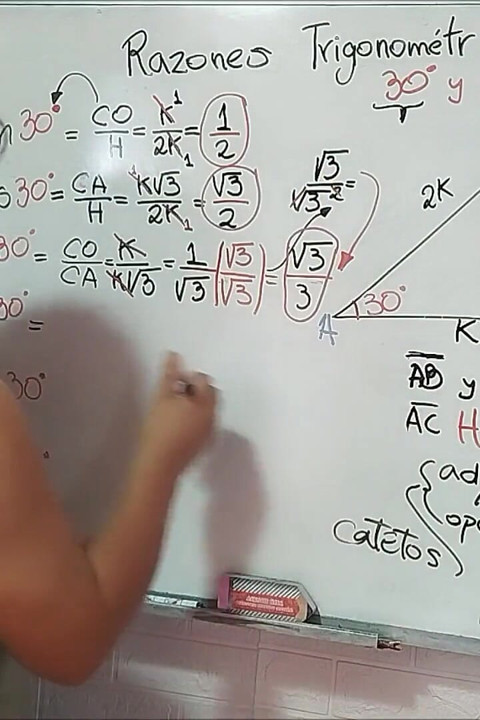 Razones Trigonométr
30° y
n 30° = CO/H = K/2K = 1/2
s 30° = CA/H = K√3/2K = √3/2
30° = CO/CA = K/K√3 = 1/√3 (√3/√3) = √3/3
√3/√3² =
30° =
30°
2K
A 30°
K
AB y
AC H
ad
opo
Catetos